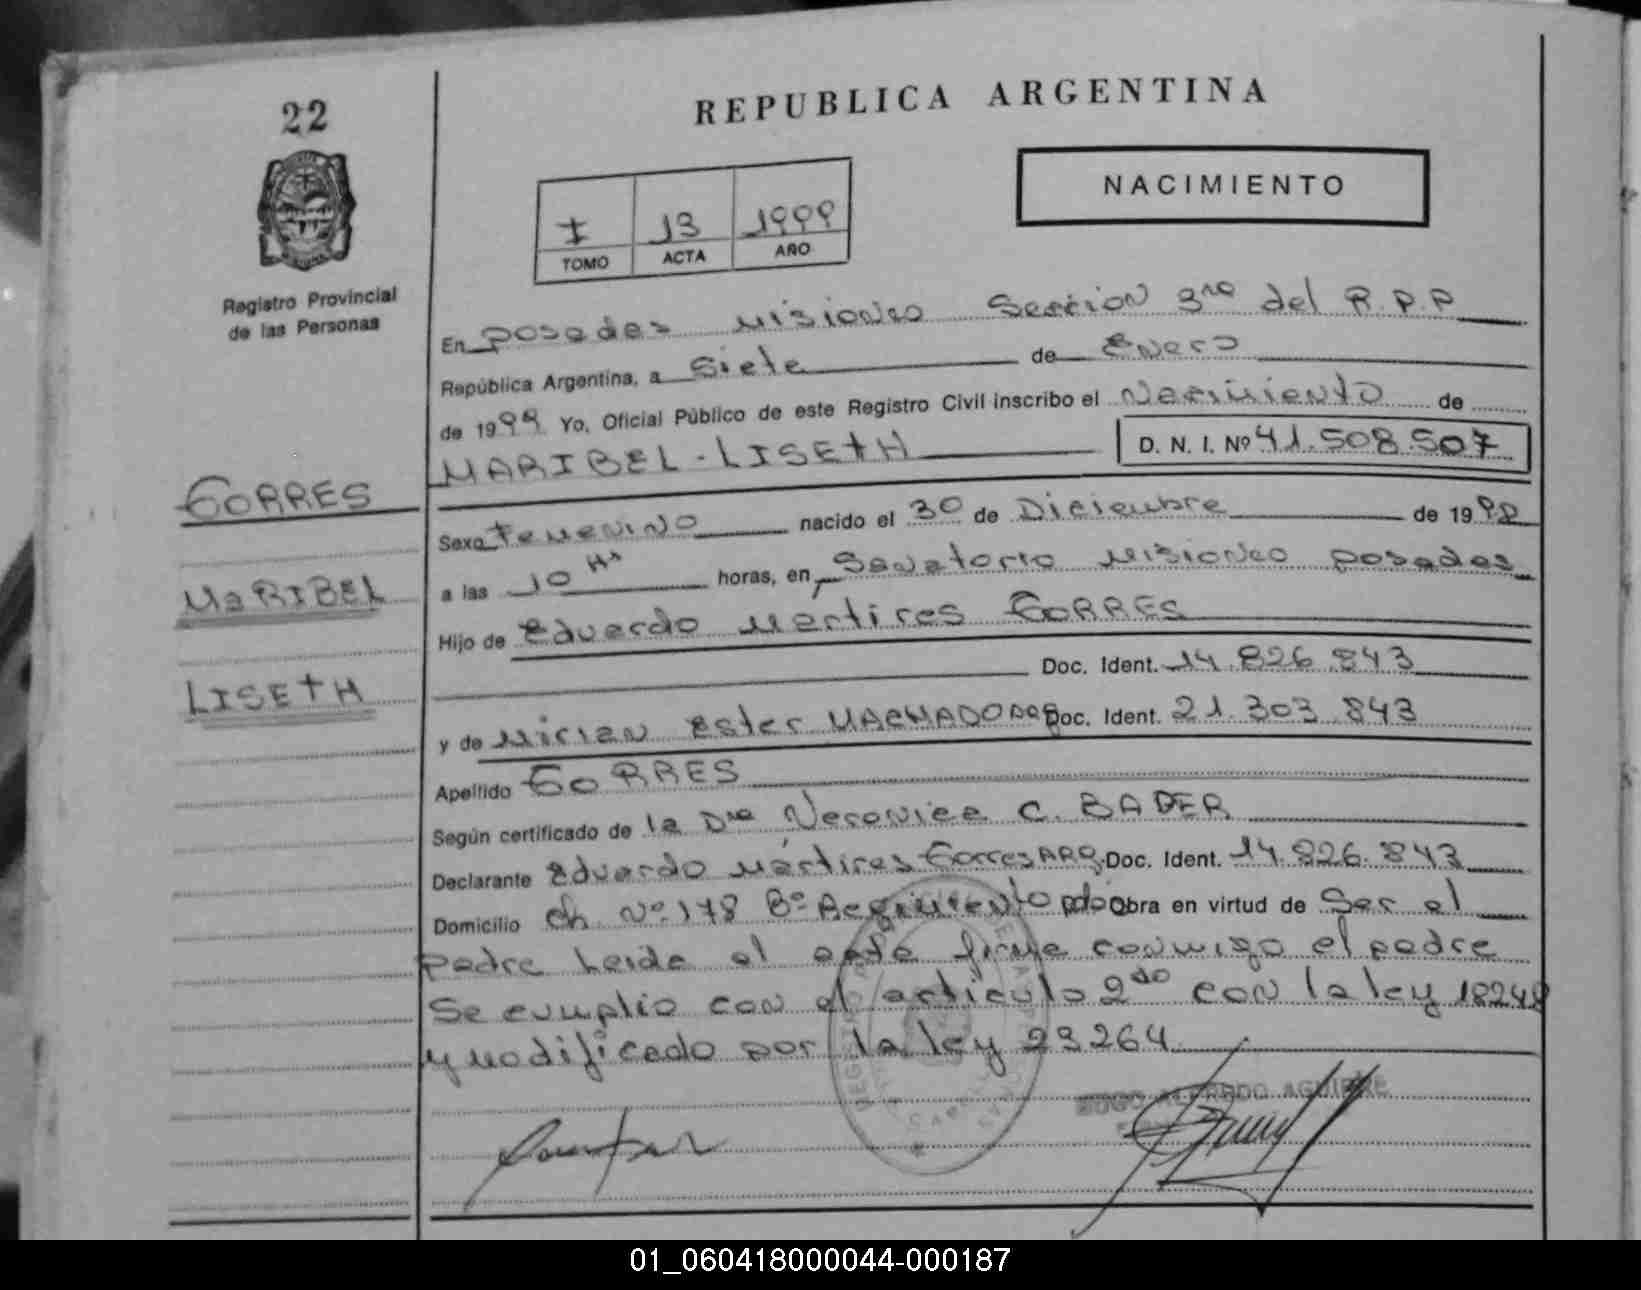 22
Registro Provincial
de las Personas
REPUBLICA ARGENTINA
NACIMIENTO
I 13 1999
TOMO ACTA AÑO
En Posadas Misiones Sección 3ra del R.P.P
República Argentina, a Siete de Enero
de 1999 Yo, Oficial Público de este Registro Civil inscribo el Nacimiento de
MARIBEL - LISETH D. N. I. Nº 41.508.507
TORRES
MARIBEL
LISETH
Sexo Femenino nacido el 30 de Diciembre de 1998
a las 10 Hs horas, en Sanatorio Misiones Posadas
Hijo de Eduardo Martires TORRES
Doc. Ident. 14.826.843
y de Mirian Ester MACHADO ARG Doc. Ident. 21.303.843
Apellido TORRES
Según certificado de la Dra Veronica C. BADER
Declarante Eduardo Mártires Torres ARG. Doc. Ident. 14.826.843
Domicilio Ch Nº 178 Bº Regimiento pdas Obra en virtud de Ser el
padre Leida el acta firma conmigo el padre
Se cumplio con el articulo 2do con la ley 18248
y modificado por la ley 23264
HUGO ALFREDO AGUIRRE
01_060418000044-000187